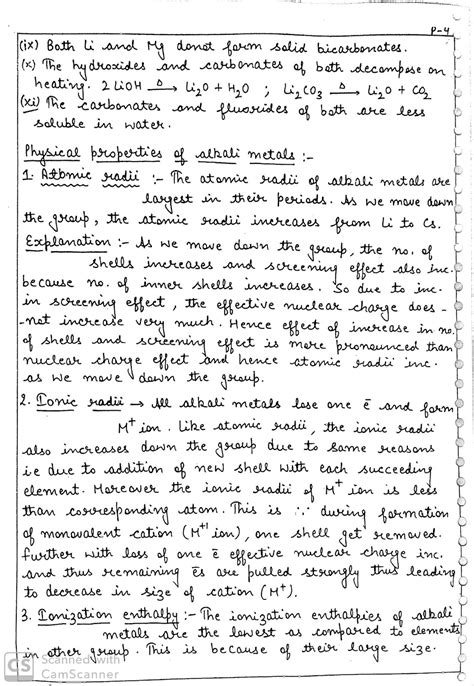 P-4
(ix) Both Li and Mg donot form solid bicarbonates.
(x) The hydroxides and carbonates of both decompose on
heating. 2LiOH —Δ→ Li₂O + H₂O ; Li₂CO₃ —Δ→ Li₂O + CO₂
(xi) The carbonates and fluorides of both are less
soluble in water.
Physical properties of alkali metals :-
1. Atomic radii :- The atomic radii of alkali metals are
largest in their periods. As we move down
the group, the atomic radii increases from Li to Cs.
Explanation :- As we move down the group, the no. of
shells increases and screening effect also inc.
because no. of inner shells increases. So due to inc.
in screening effect, the effective nuclear charge does-
-not increase very much. Hence effect of increase in no.
of shells and screening effect is more pronounced than
nuclear charge effect and hence atomic radii inc.
as we move down the group.
2. Ionic radii → All alkali metals lose one ē and form
M⁺ ion. Like atomic radii, the ionic radii
also increases down the group due to same reasons
i.e due to addition of new shell with each succeeding
element. Moreover the ionic radii of M⁺ ion is less
than corresponding atom. This is ∵ during formation
of monovalent cation (M⁺¹ ion), one shell get removed.
Further with loss of one ē effective nuclear charge inc.
and thus remaining ēs are pulled strongly thus leading
to decrease in size of cation (M⁺).
3. Ionization enthalpy :- The ionization enthalpies of alkali
metals are the lowest as compared to elements
in other group. This is because of their large size.
CS Scanned with
CamScanner